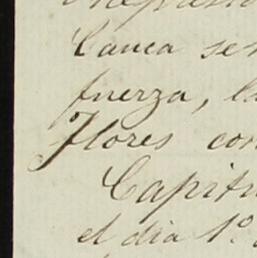 Cauca se
fuerza, la
Flores con
Capitu
el dia 1º.